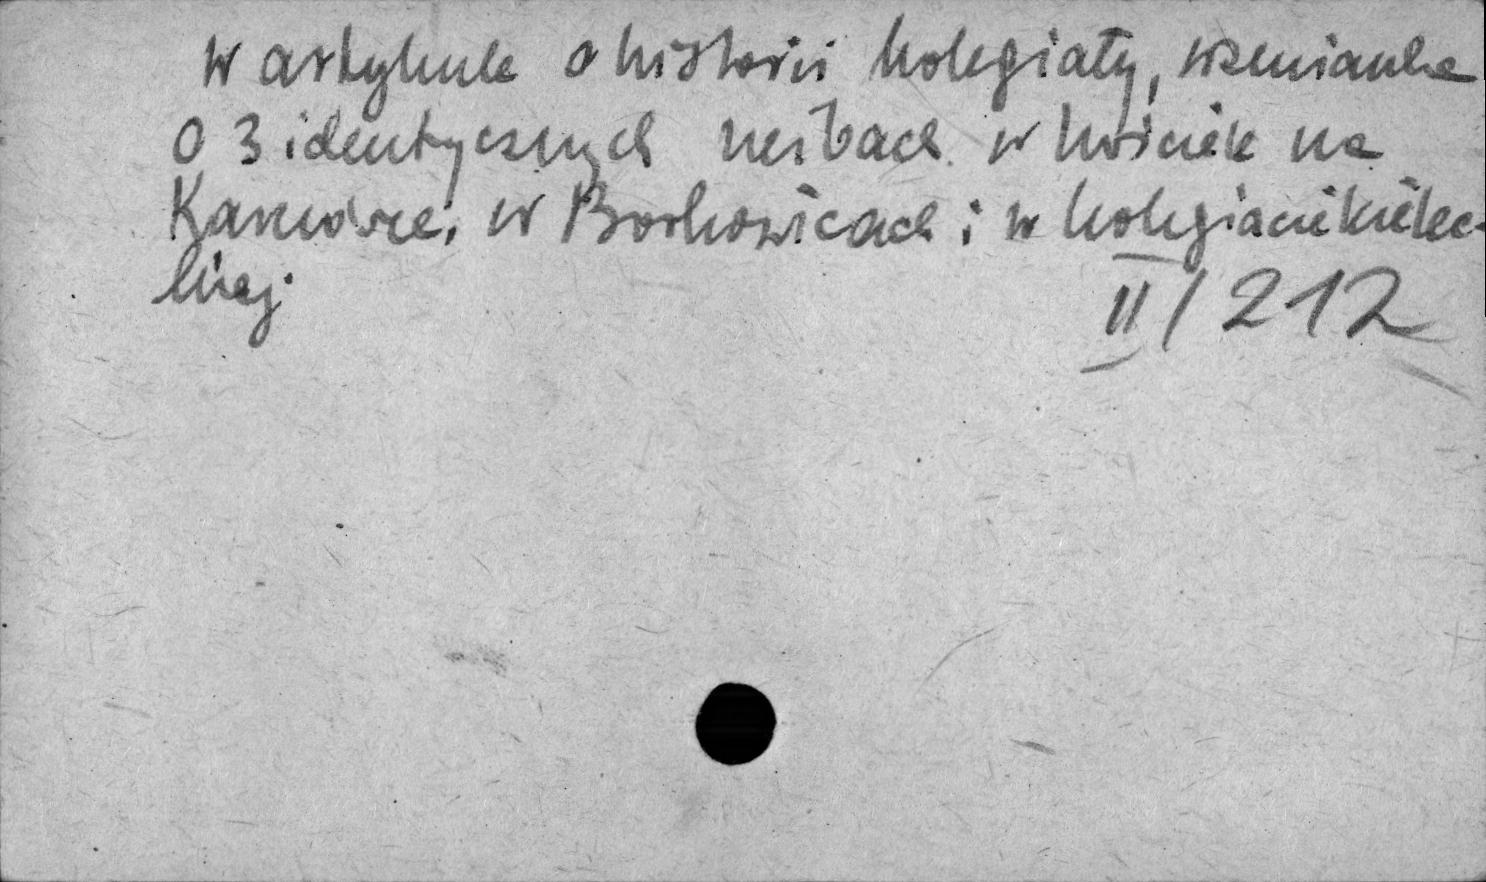 w artykule o historii kolegiaty, wzmianka
o 3 identycznych rzeźbach w kościele na
Karczówce, w Borkowicach i w kolegiacie kielec-
kiej.
II/212